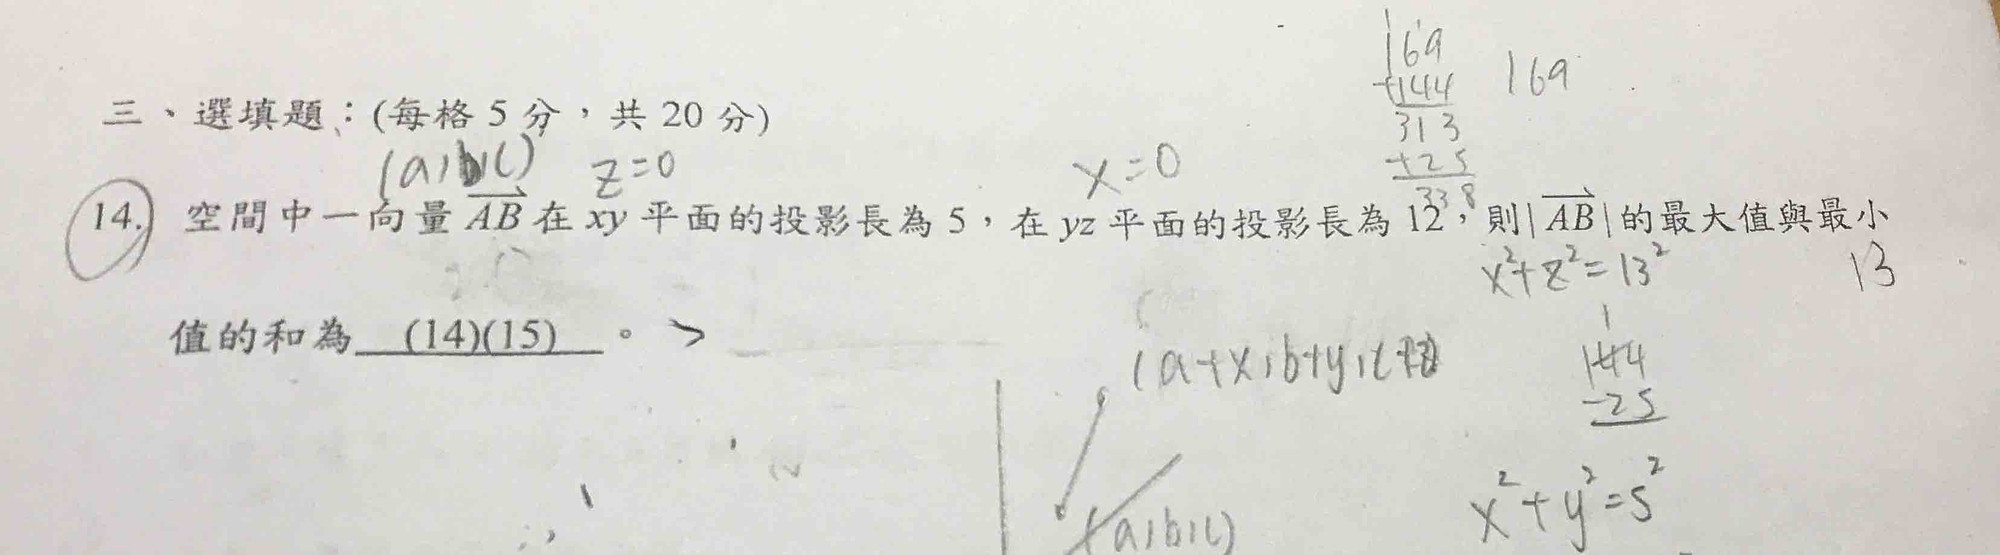 169
+144
313
+25
338
169
三、選填題：(每格 5 分，共 20 分)
(a,b,c) z=0 x=0
14. 空間中一向量 AB 在 xy 平面的投影長為 5，在 yz 平面的投影長為 12，則| AB |的最大值與最小
x²+z²=13² 13
值的和為 (14)(15) 。
(a+x,b+y,c+z)
144
-25
x²+y²=5²
(a,b,c)